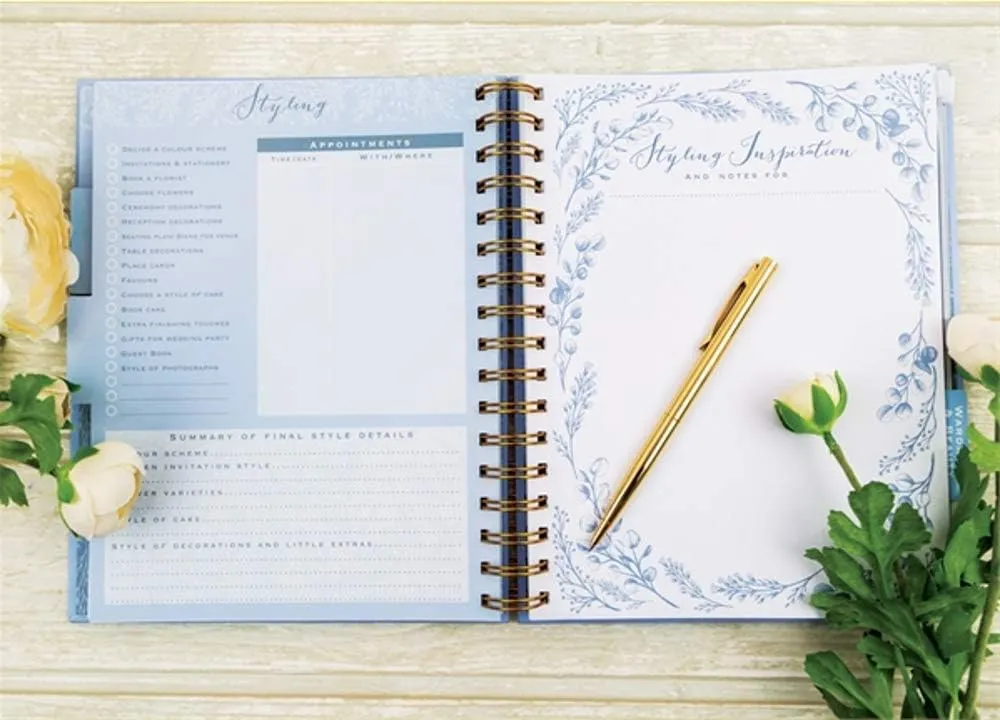 Styling
Decide a colour scheme
Invitations & stationery
Book a florist
Choose flowers
Ceremony decorations
Reception decorations
Seating plan/ Signs for venue
Table decorations
Place cards
Favours
Choose a style of cake
Book cake
Extra finishing touches
Gifts for wedding party
Guest Book
Style of photographs
Appointments
Time/Date With/Where
Summary of final style details
our scheme
en invitation style
er varieties
le of cake
Style of decorations and little extras
Styling Inspiration
and notes for